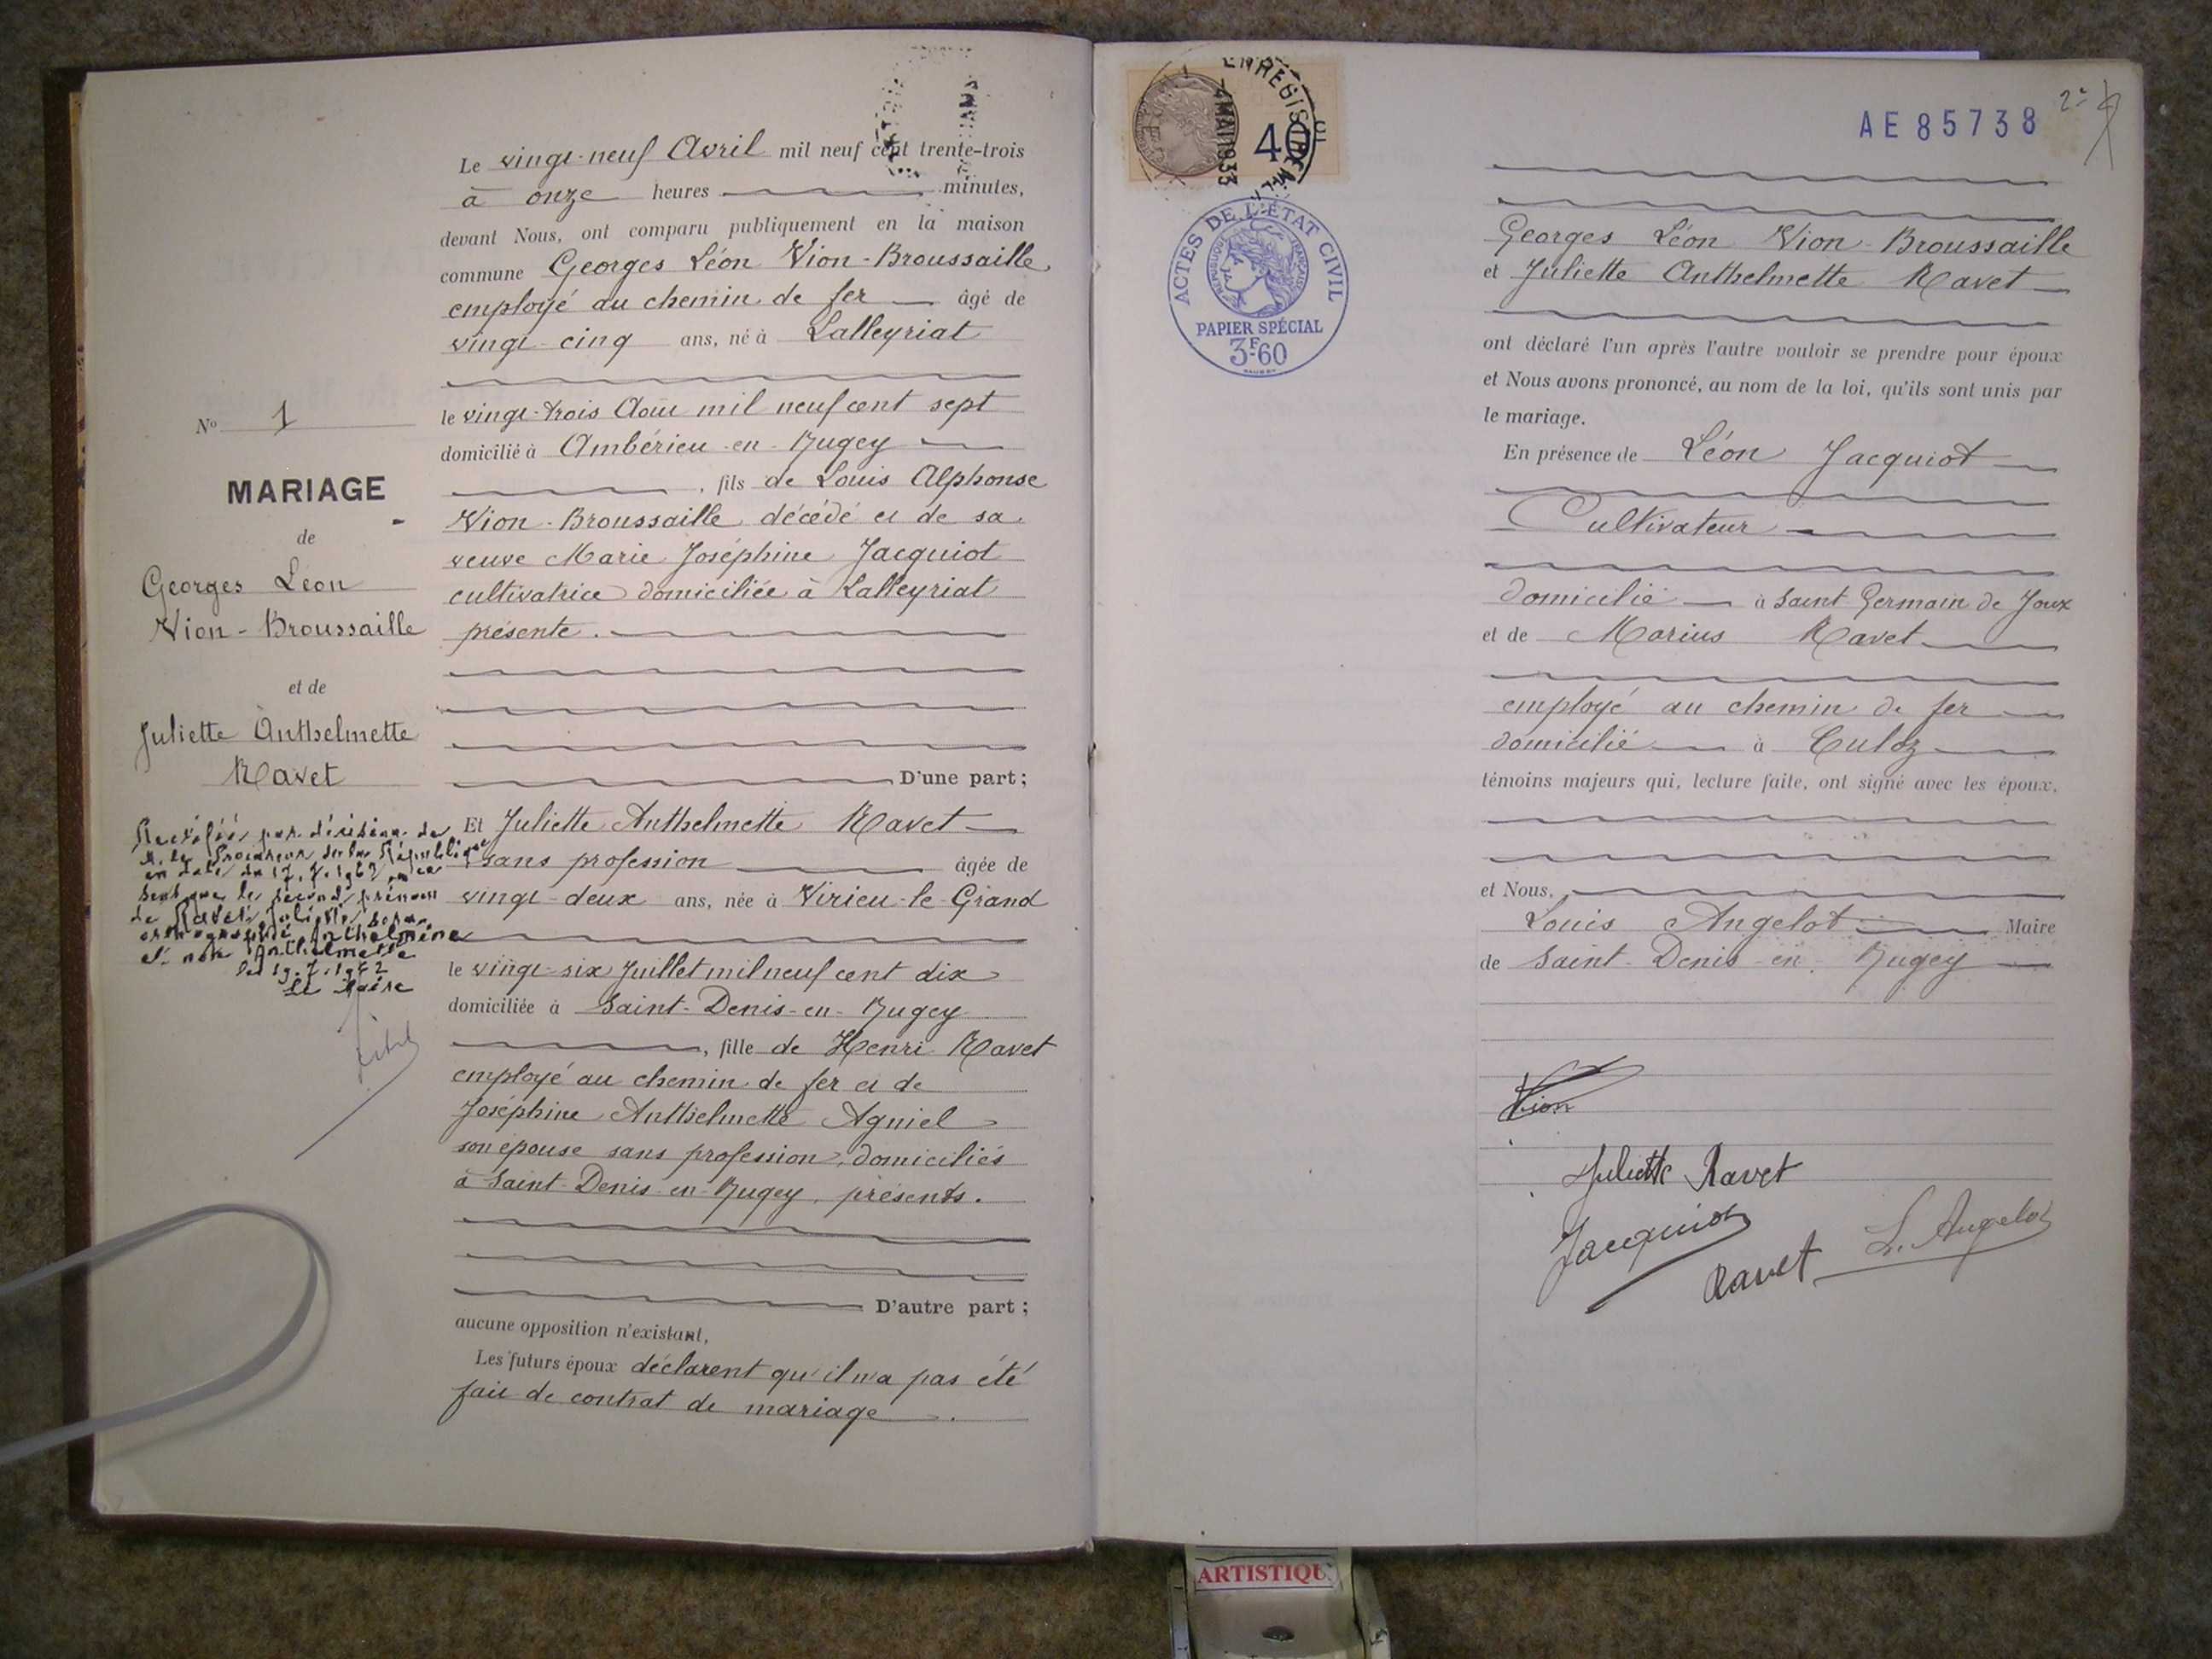 Le vingt-neuf Avril mil neuf cent trente-trois
à onze heures minutes,
devant Nous, ont comparu publiquement en la maison
commune Georges Léon Vion-Broussaille
employé au chemin de fer âgé de
vingt-cinq ans, né à Lalleyriat
le vingt-trois Août mil neuf cent sept
domicilié à Ambérieu-en-Bugey
, fils de Louis Alphonse
Vion-Broussaille décédé et de sa
veuve Marie Joséphine Jacquiot
cultivatrice domiciliée à Lalleyriat
présente.
D'une part;
Et Juliette Anthelmette Ravet
sans profession âgée de
vingt-deux ans, née à Virieu-le-Grand
le vingt-six Juillet mil neuf cent dix
domiciliée à Saint-Denis-en-Bugey
, fille de Henri Ravet
employé au chemin de fer et de
Joséphine Anthelmette Agniel
son épouse sans profession, domiciliés
à Saint-Denis-en-Bugey, présents.
D'autre part;
aucune opposition n'existant,
Les futurs époux déclarent qu'il n'a pas été
fait de contrat de mariage.
No 1
MARIAGE
de
Georges Léon
Vion-Broussaille
et de
Juliette Anthelmette
Ravet
Rectifié par décision de
M. le Procureur de la République
en date du 17.7.1962 en ce
sens que le second prénom
de Ravet Juliette sera
orthographié Anthelmine
et non Anthelmette
le 19.7.1962
Le Maire
ENREGISTREM
4 MAI 1933
40
ACTES DE L'ÉTAT CIVIL
RÉPUBLIQUE FRANÇAISE
PAPIER SPÉCIAL
3F60
AE 85738
2e
Georges Léon Vion-Broussaille
et Juliette Anthelmette Ravet
ont déclaré l'un après l'autre vouloir se prendre pour époux
et Nous avons prononcé, au nom de la loi, qu'ils sont unis par
le mariage.
En présence de Léon Jacquiot
Cultivateur
domicilié à Saint Germain de Joux
et de Marius Ravet
employé au chemin de fer
domicilié à Culoz
témoins majeurs qui, lecture faite, ont signé avec les époux,
et Nous,
Louis Angelot Maire
de Saint-Denis-en-Bugey
Vion
Juliette Ravet
Jacquiot
Ravet
L. Angelot
ARTISTIQU